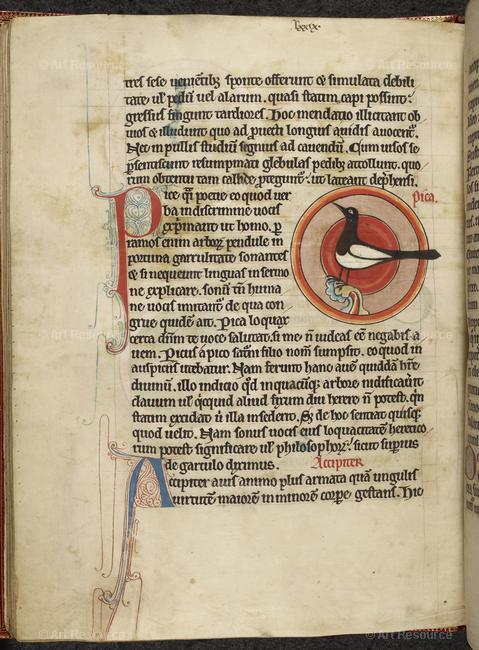 lxxix.
tres sese uenientib; sponte offerunt & simulata debili
tate ul' pedu uel alarum. quasi statim capi possint:
gressus fingunt tardiores. Hoc mendatio illicitant ob
uios & illudunt quo ad puecti longius auidis auocent.
Nec in pullis studiu segnius ad cauendu. Cum uisos se
psentiscunt resupinati glebulas pedib; attollunt. quo
rum obtentu tam callide pteguntur: ut lateant dephensi.
pica.
Pice qsi poetice eo quod uer
ba in discrimine uocis
exprimant ut homo. p
ramos enim arboru pendule in
portuna garrulitate sonantes
& si nequeunt linguas in sermo
ne explicare. sonu tn huma
ne uocis imitant. de qua con
grue quida ait. Pica loquax
certa dnm te uoce saluto. si me n uideas ee negabis a
uem. Picus a pico saturni filio nom sumpsit. eo quod in
auspiciis utebatur. Nam ferunt hanc aue quidda hre
diuinu. illo indicio qd in quacuq; arbore nidificauit
clauum uel qicquid aliud fixum diu herere n potest. qn
statim excidat u illa insederit. S; de hoc sentiat quisq;
quod uelit. Nam sonus uocis eius loquacitate heretico
rum potest significare ul' philosophor: sicut supius
de garrulo diximus. Accipiter
Accipiter auis animo plus armata qua ungulis
uirtute maiorem in minore corpe gestans. Hic
© Art Resource
© Art Resource
© Art Resource
© Art Resource